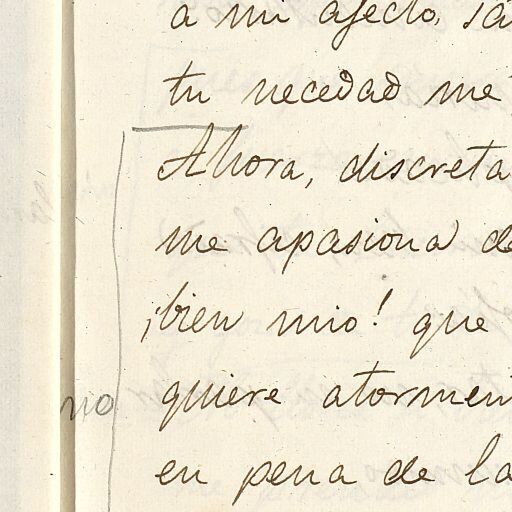 a mi afecto, sa
tu necedad me
Ahora, discreta
me apasiona de
¡bien mio! que
no quiere atormen
en pena de la